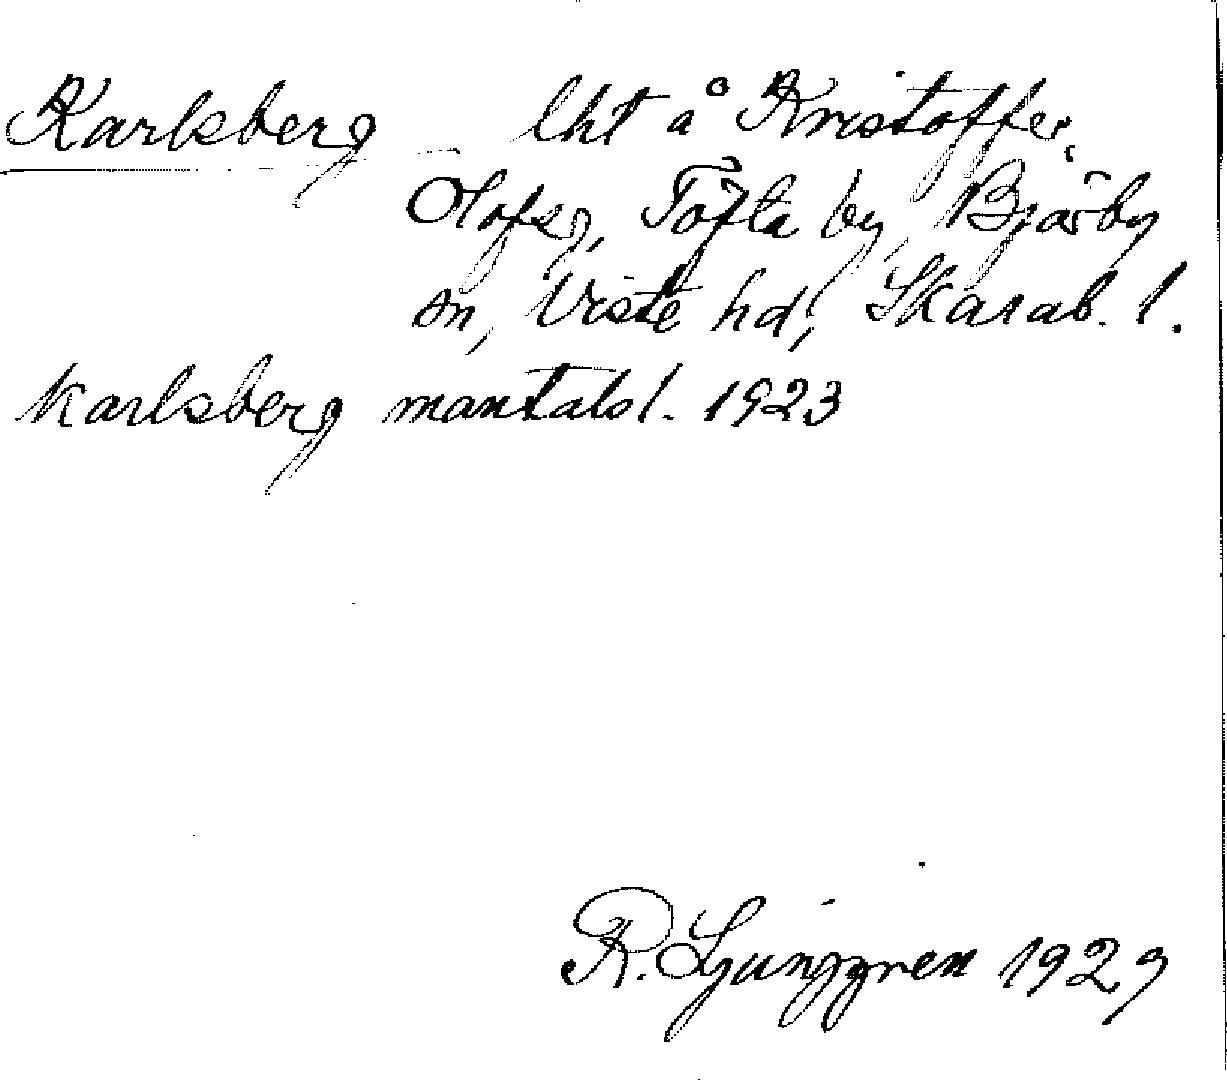 Karlsberg lht å Kristoffer,
Olofsg, Töfta by, Bjärby
sn, Viste hd, Skarab. l.
Karlsberg mantalsl. 1923
R. Ljunggren 1929